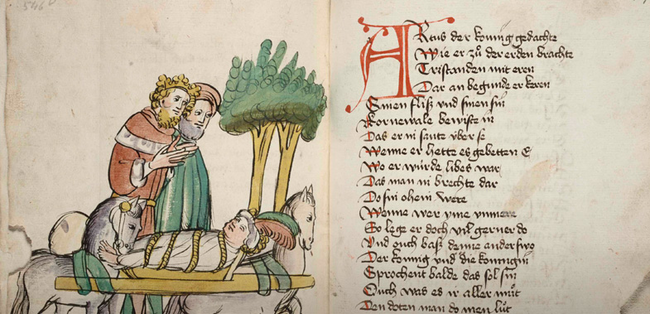 Artus der konnig gedachte
Wie er zů der erden brachte
Tristanden mit eren
Dar an begunde er keren
Sinen fliß vnd sinen sin
Kornewale bewiste in
Das er in sante vber se
Wenne er hette es gebetten E
Wo er wurde libes war
Das man in brechte dar
Do sin ohein were
Wenne wer yme ummere
So lege er doch vil gerner do
Vnd ouch baß denne anderswo
Der konnig vnd die konnigin
Sprochent balde das sol sin
Ouch was es ir aller můt
Den doten man do men lůt